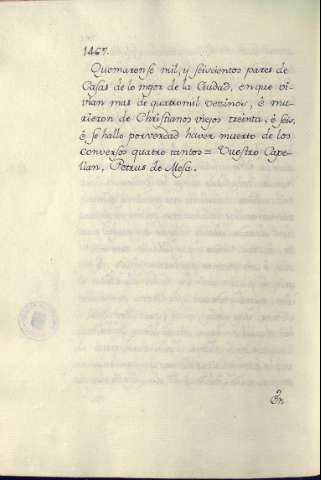 1467.
Quemarense mil, y seiscientos pares de
Casas de lo mejor de la Ciudad, en que vi-
vian mas de quatromil vezinos, è mu-
rieron de Christianos viejos treinta, è seis,
è se hallo porverdad haver muerto de los
conversos quatro tantos = Vuestro Cape-
llan, Petrus de Mesa.
En